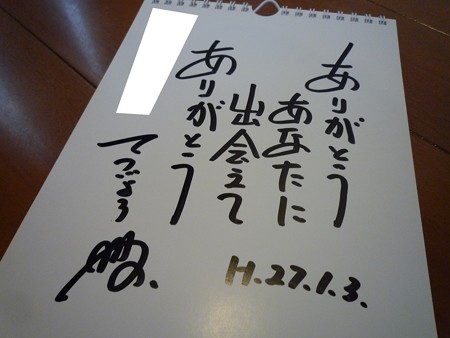 ありがとう
あなたに
出会えて
ありがとう
てつじろう
H.27.1.3.